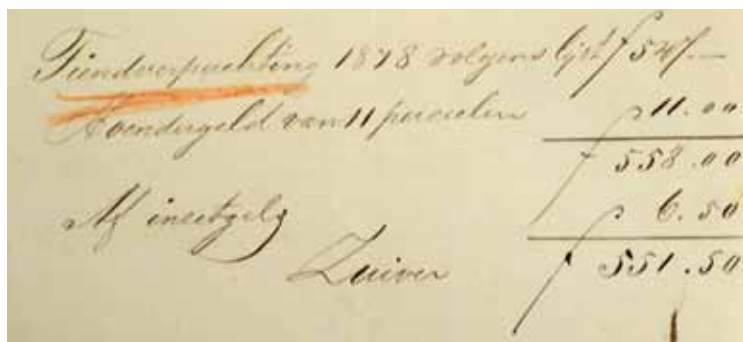 Tiendverpachting 1878 volgens lijst f 547.—
Hoendergeld van 11 perceelen " 11.00
f 558.00
Af inzetgelg " 6.50
Zuiver f 551.50